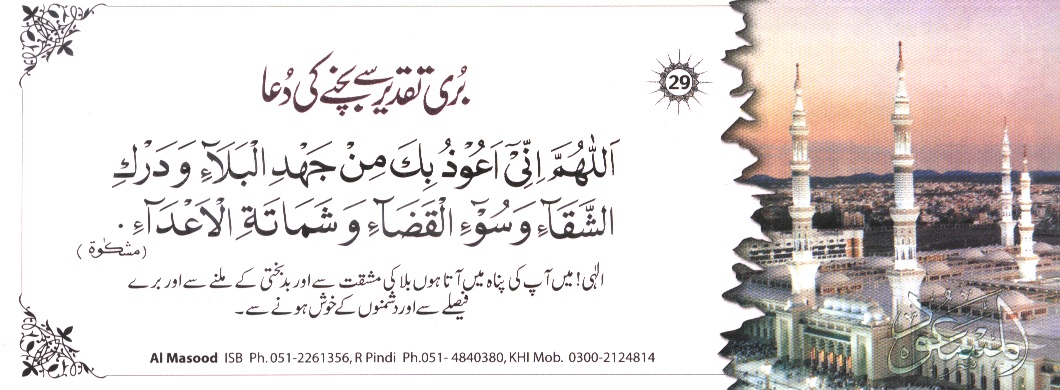 بُری تقدیر سے بچنے کی دُعا
29
اَللّٰهُمَّ اِنِّیْٓ اَعُوْذُ بِكَ مِنْ جَهْدِ الْبَلَآءِ وَ دَرْكِ
الشَّقَآءِ وَ سُوْٓءِ الْقَضَآءِ وَ شَمَاتَةِ الْاَعْدَآءِ۔
(مشکوٰۃ)
الٰہی! میں آپ کی پناہ میں آتا ہوں بلا کی مشقت سے اور بدبختی کے ملنے سے اور برے
فیصلے سے اور دشمنوں کے خوش ہونے سے۔
Al Masood ISB Ph. 051-2261356, R Pindi Ph.051- 4840380, KHI Mob. 0300-2124814
المسعود